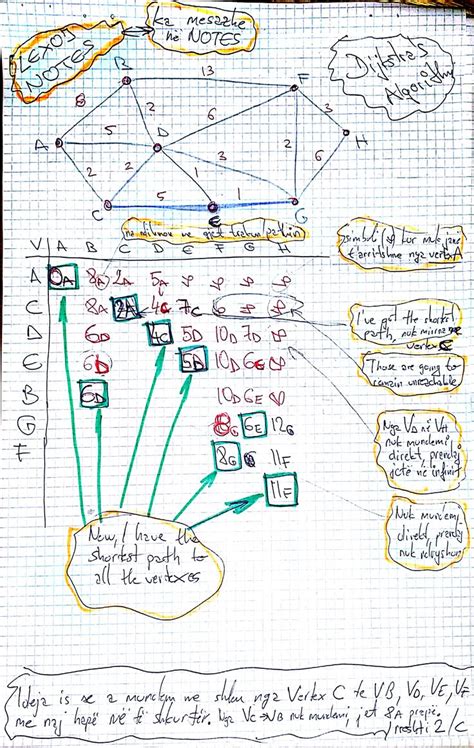 LEXOJ
NOTES
ka mesazhe
në NOTES
Dijkstra's
Algorithm
B 13 F
8 2 6 2 3
A 5 D 3 H
2 2 1 6
C 5 E 1 G
V A B C D E F G H
A 0A 8A 2A 5A ∞ ∞ ∞ ∞
C 8A 2A 4C 7C ∞ ∞ ∞
D 6D 4C 5D 10D 7D ∞
E 6D 5D 10D 6E ∞
B 6D 10D 6E ∞
G 8G 6E 12G
F 8G 11F
11F
simboli
nga vertex
I've got the shortest
path, nuk
vertex C
Those are going to
remain unreachable
Nga VD në VH
nuk mundemi
direkt, prandaj
është në infinit
Nuk mundemi
direkt, prandaj
nuk
Now, I have the
shortest path to
all the vertexes
Ideja is se a mundem me shku nga Vertex C te VB, VD, VE, VF
me naj hapë më të shkurtër. Nga VC→VB nuk mundemi, jet 8A prapë.
2/C